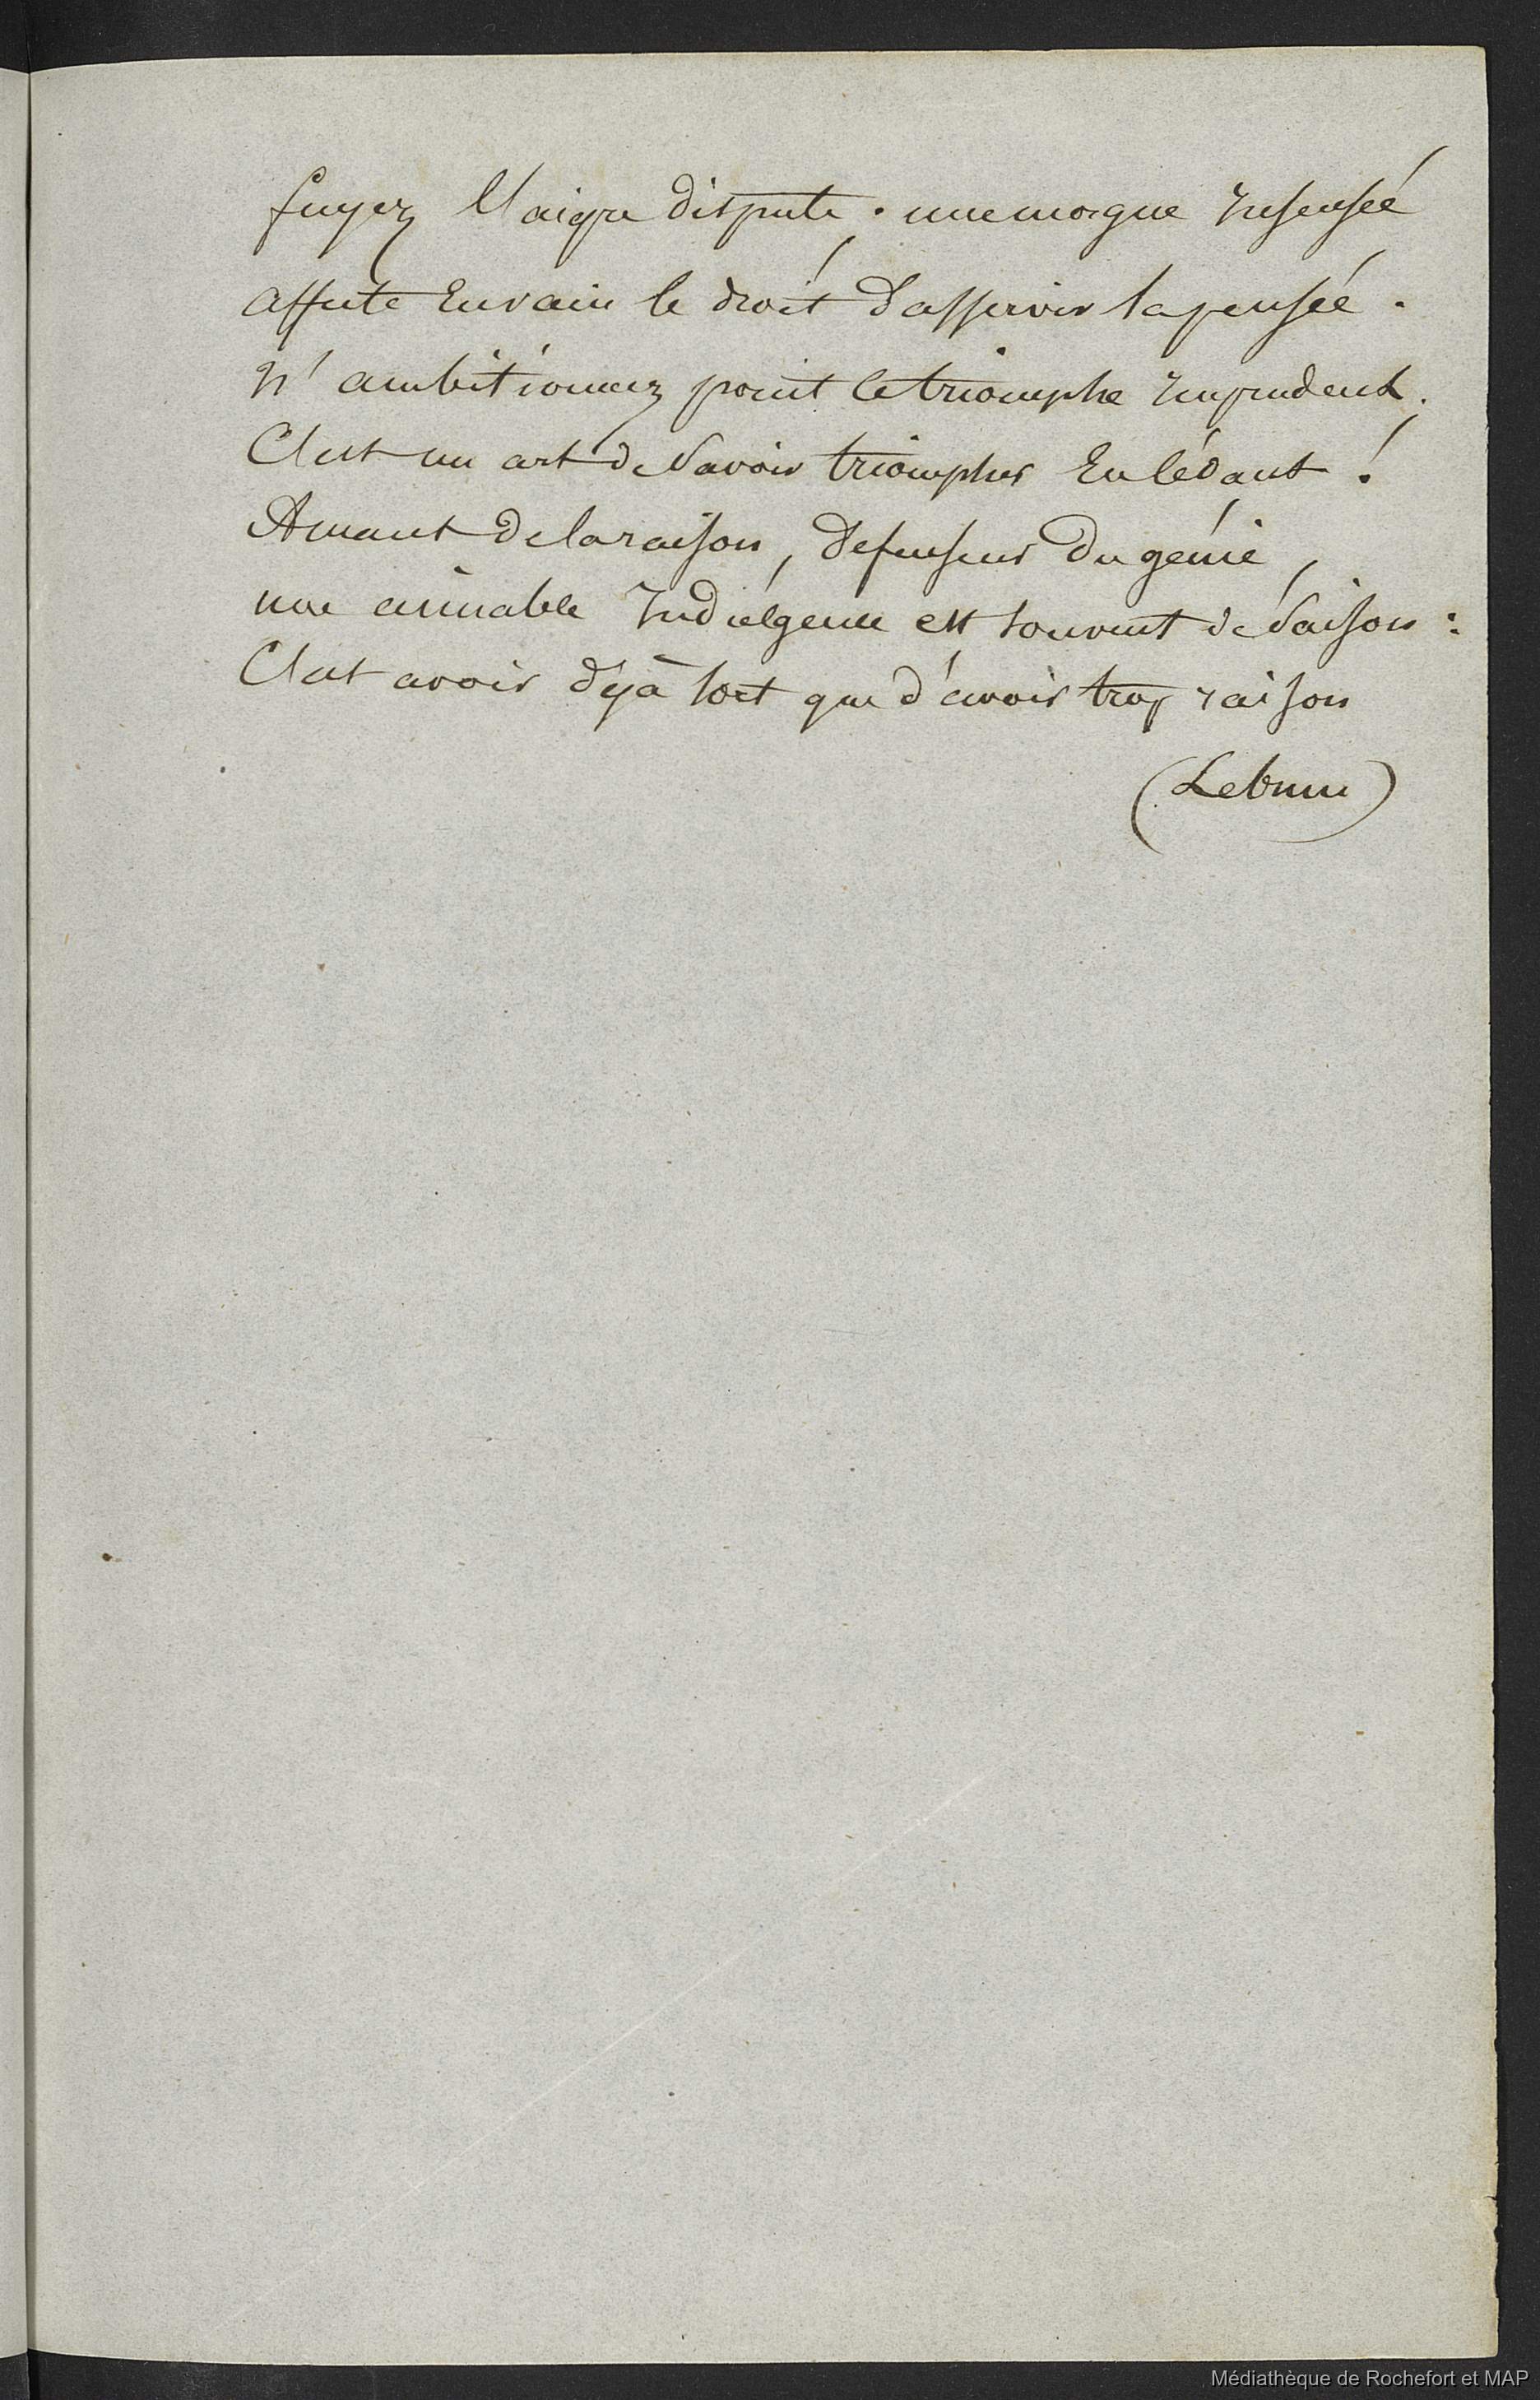 fuyez l'aigre dispute. une morgue insensée
affecte envain le droit d'asservir la pensée.
n'ambitionnez point le triomphe imprudent.
C'est un art de savoir triompher en cédant !
Amant de la raison, défenseur du génie,
une aimable indulgence est souvent de saison :
C'est avoir déjà tort que d'avoir trop raison
(Lebrun)
Médiathèque de Rochefort et MAP